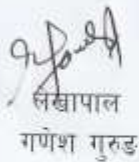 लेखापाल
गणेश गुरुड